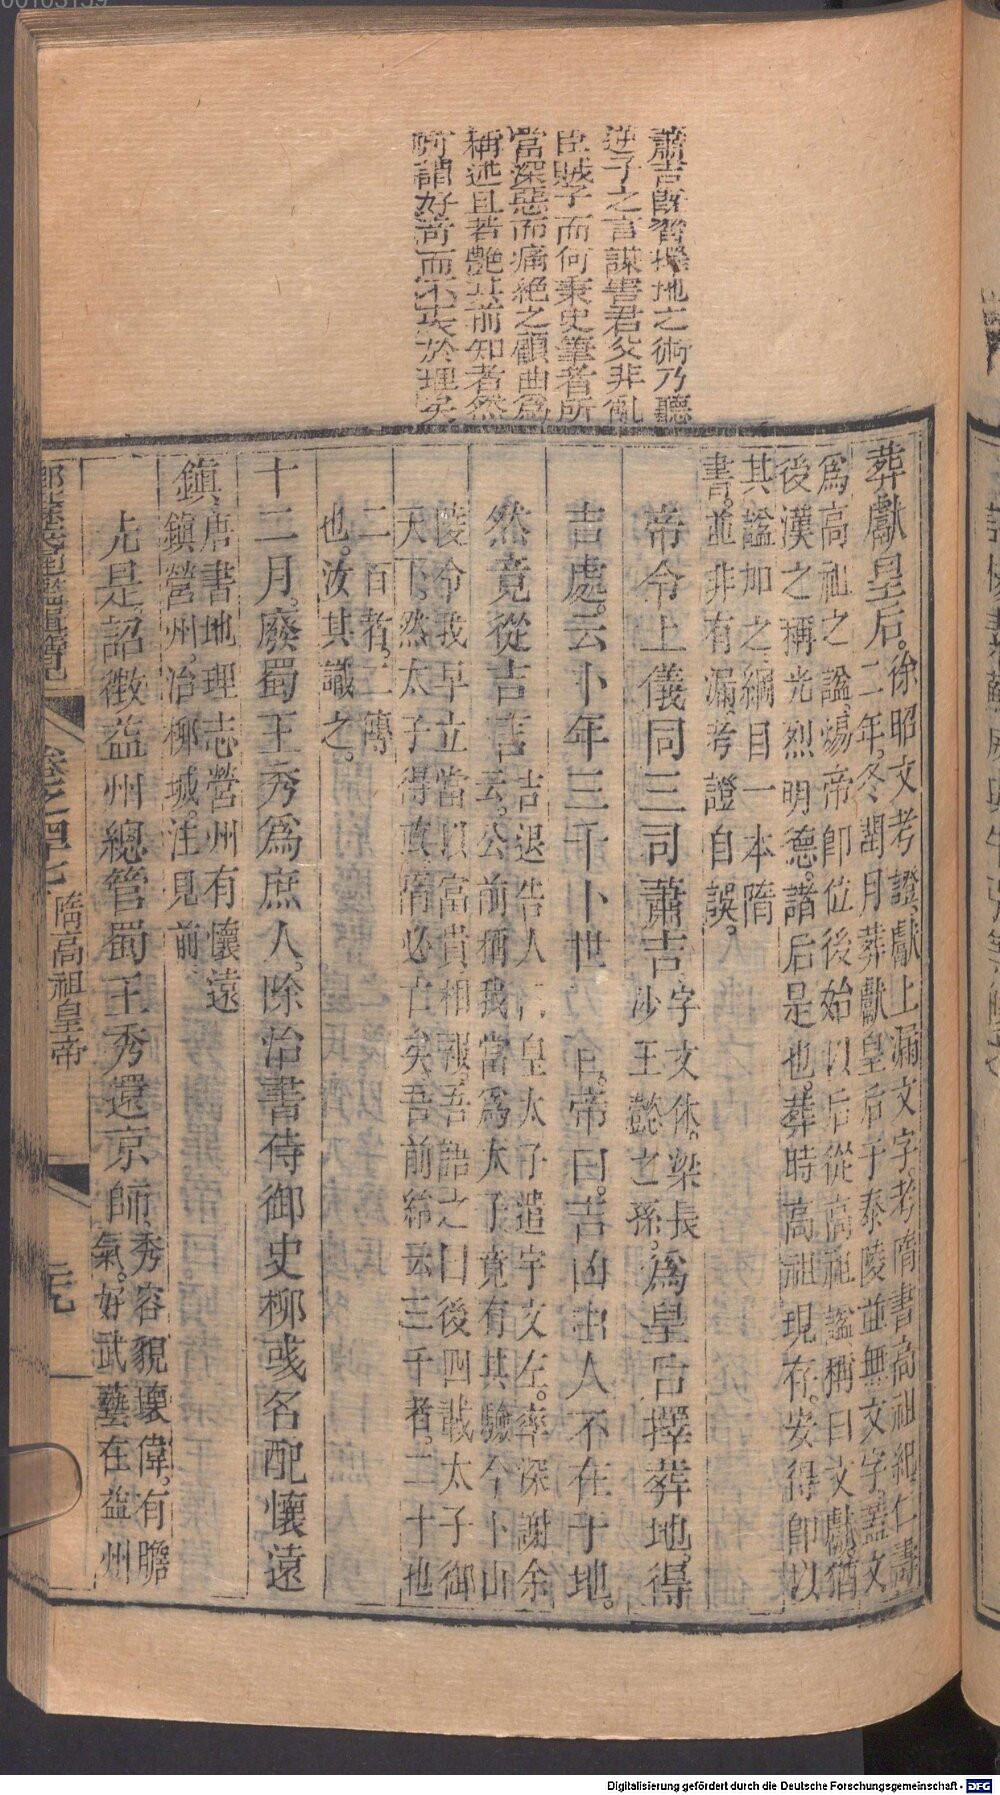 00103159
蕭吉旣習擇地之術乃聽
逆子之言謀害君父非亂
臣賊子而何秉史筆者所
當深惡而痛絕之顧曲爲
稱述且若艶其前知者然
可謂好奇而不衷於理矣
葬獻皇后。徐昭文考證、獻上漏文字。考隋書高祖紀、仁壽
二年。冬。閏月。葬獻皇后于泰陵。並無文字。蓋文
爲高祖之諡。煬帝卽位後始以后從高祖諡稱曰文獻。猶
後漢之稱光烈明德。諸后是也。葬時高祖現存。安得卽以
其諡加之。綱目一本隋
書。並非有漏。考證自誤。
帝令上儀同三司蕭吉、字文休。梁長
沙王懿之孫。爲皇后擇葬地。得
吉處。云卜年三千。卜世二百。帝曰。吉凶由人。不在于地。
然竟從吉言。吉退告人曰。皇太子遣宇文左率深謝余
云。公前稱我當爲太子。竟有其驗。今卜山
陵。令我早立。當以富貴相報。吾語之曰。後四載。太子御
天下。然太子得政。隋必亡矣。吾前紿云三千者。三十也
二百者。二傳
也。汝其識之。
十二月。廢蜀王秀爲庶人。除治書侍御史柳彧名。配懷遠
鎮。唐書地理志。營州有懷遠
鎮。營州。治柳城。注見前。
先是。詔徵益州總管蜀王秀還京師、秀容貌瓌偉。有瞻
氣。好武藝。在益州
卷之四七
隋高祖皇帝
元
Digitalisierung gefördert durch die Deutsche Forschungsgemeinschaft - DFG